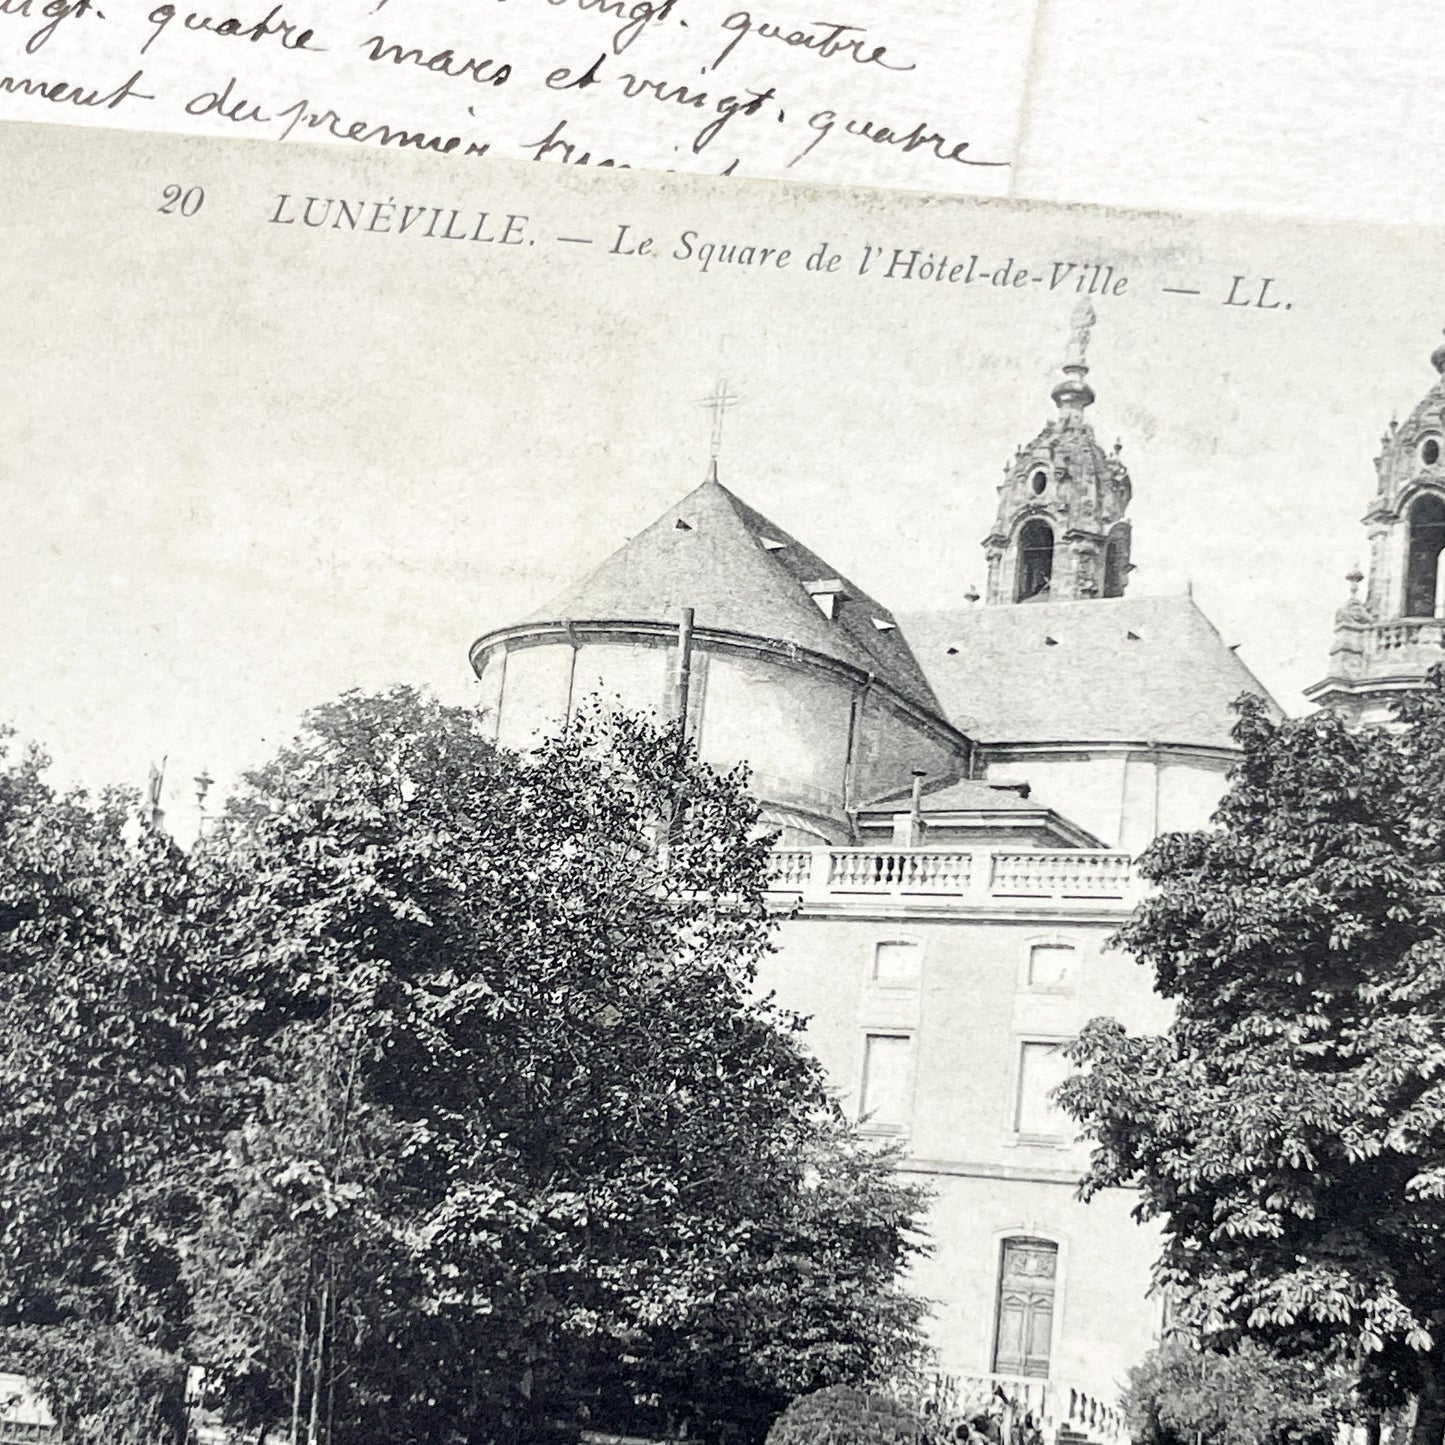 vingt. quatre
quatre mars et vingt. quatre
du premier
20 LUNÉVILLE. — Le Square de l'Hôtel-de-Ville — LL.